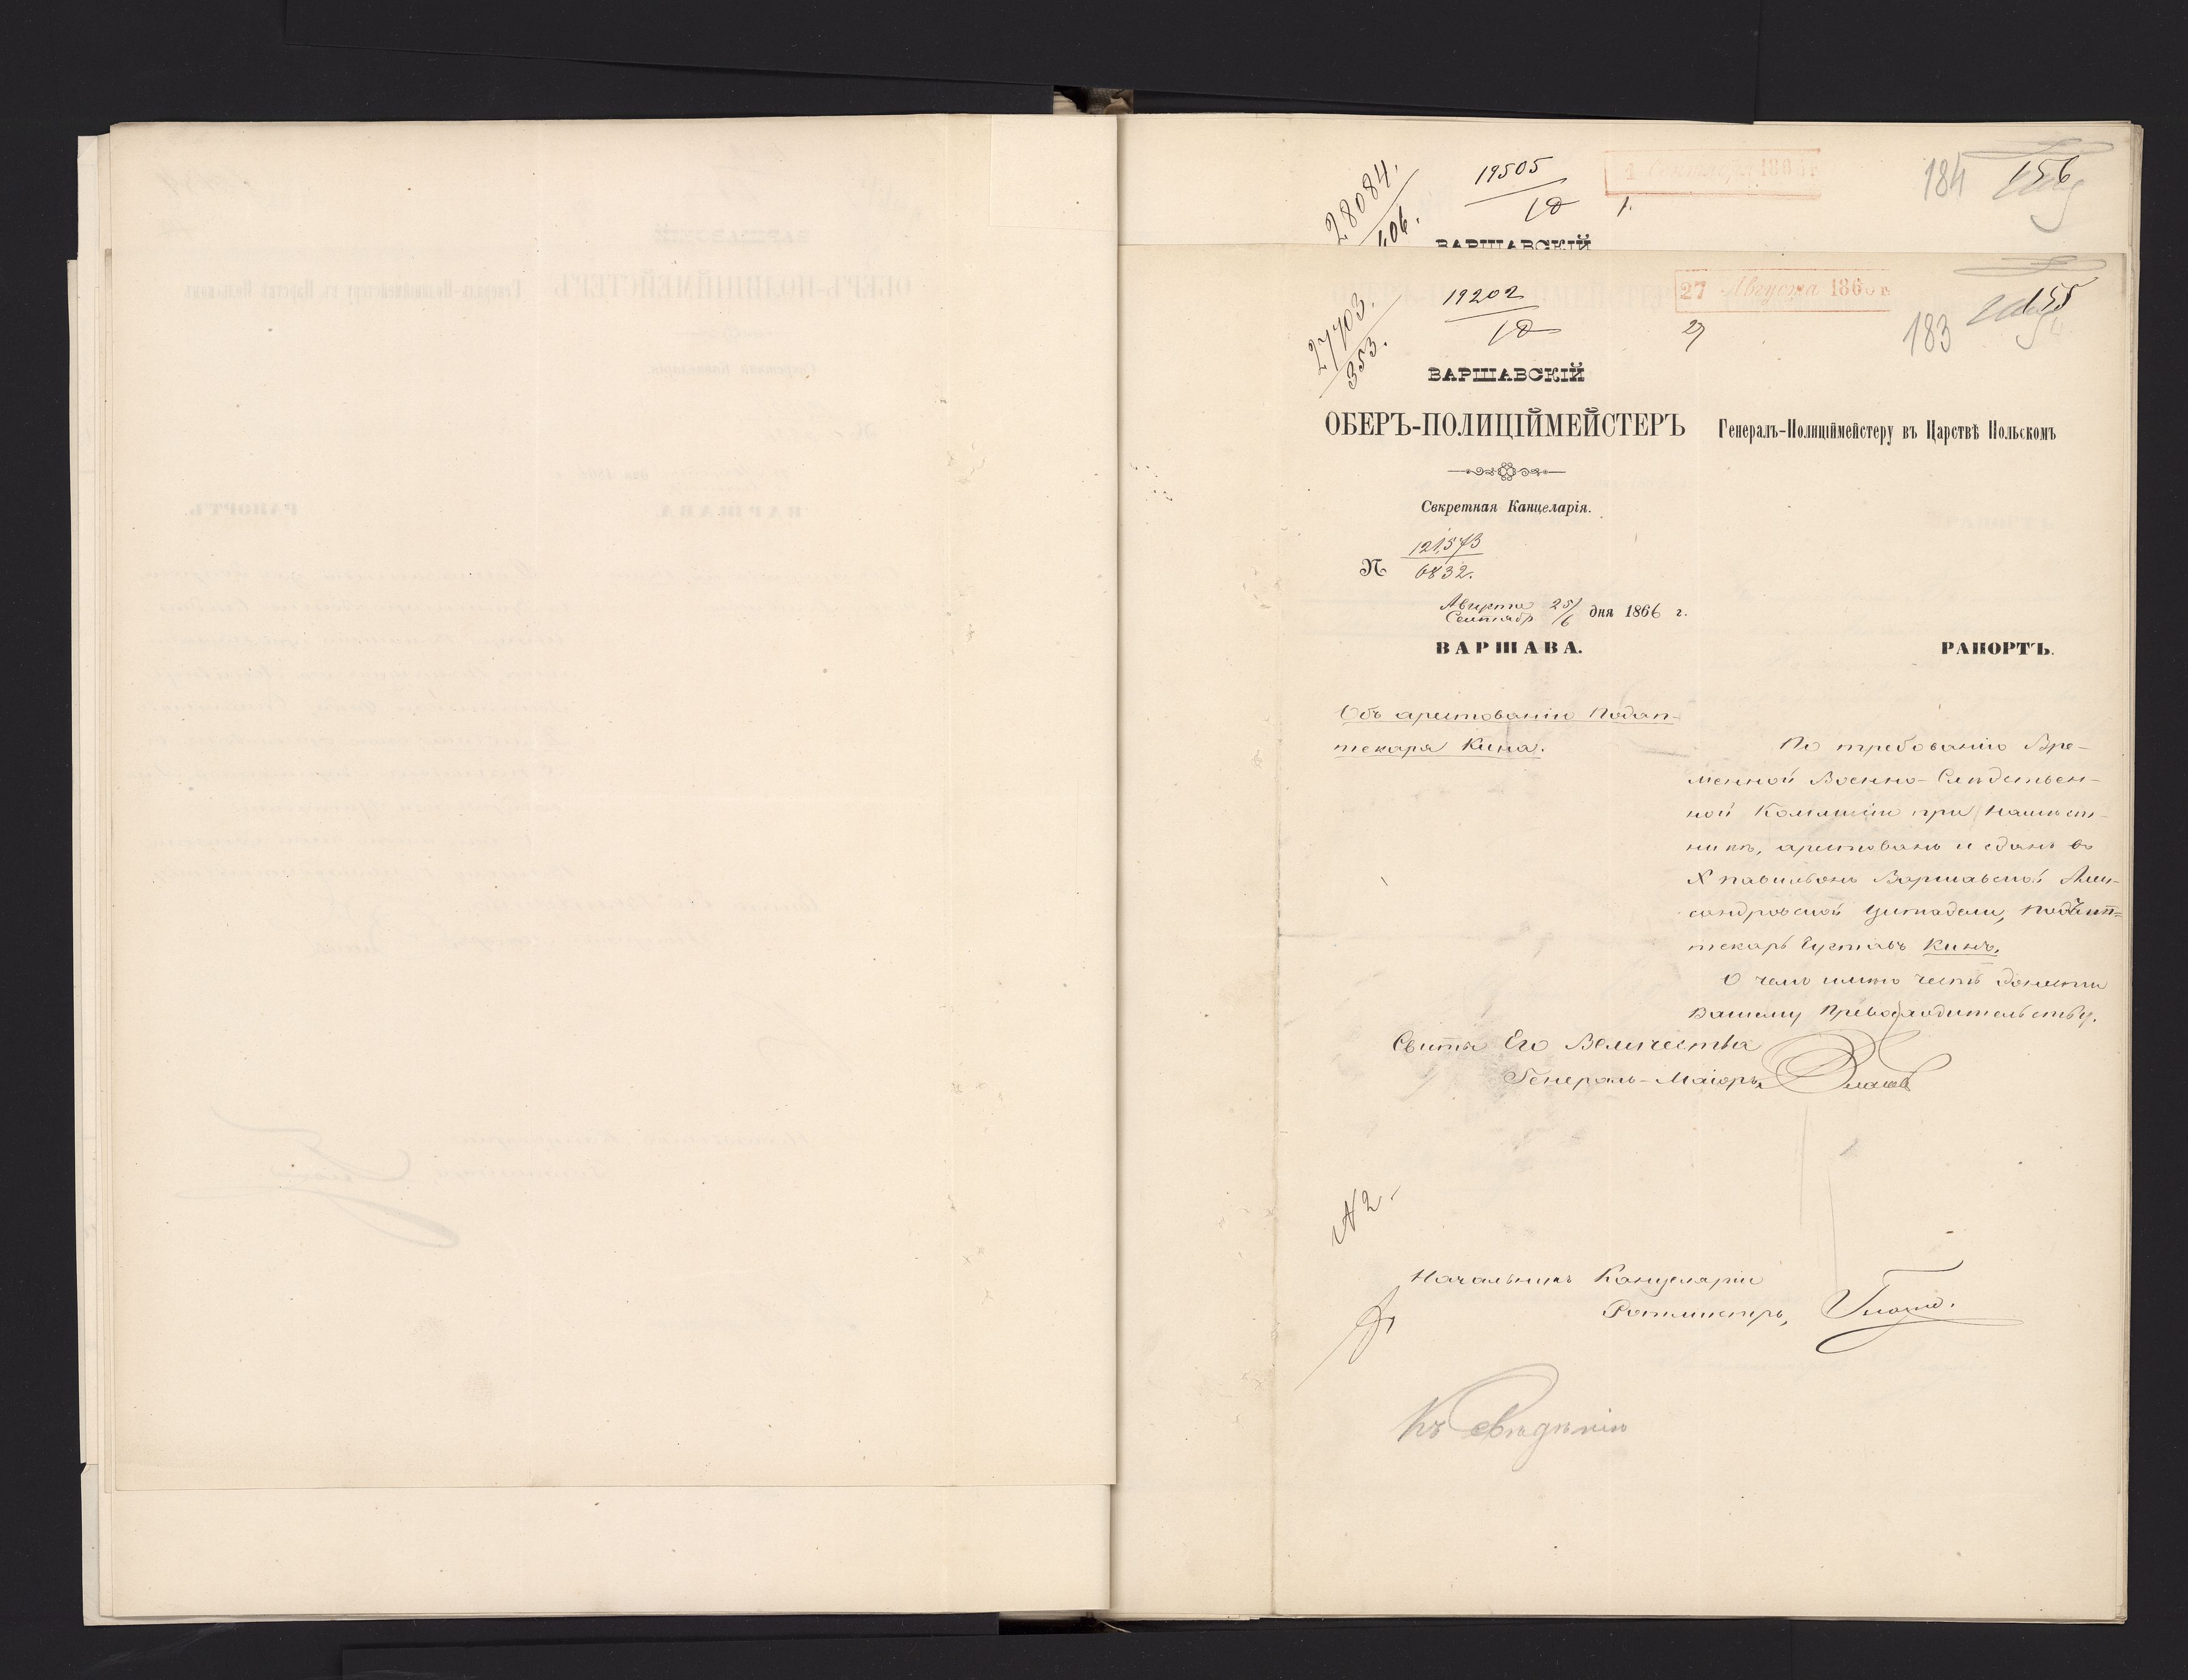 28084.
406.
19505
10
1.
4 Сентября 1866 г
184
156
ВАРШАВСКІЙ
27703.
353.
19202
10
27 Августа 1866 г
27
183
155
ВАРШАВСКІЙ
ОБЕРЪ-ПОЛИЦІЙМЕЙСТЕРЪ
Генералъ-Полиціймейстеру въ Царствѣ Польскомъ
Секретная Канцелярія.
N 121,573
6832.
Августа 25/
Сентябр 6 дня 1866 г.
ВАРШАВА.
РАПОРТЪ.
Объ арестованіи Подап-
текаря Кина.
По требованію Вре-
менной Военно-Слѣдствен-
ной Коммисіи при Намѣст-
никѣ, арестованъ и сданъ въ
X павильонъ Варшавской Алек-
сандровской Цитадели, Подъап-
текарь Густавъ Кинъ.
О чемъ имѣю честь донести
Вашему Превосходительству.
Свиты Его Величества
Генералъ-Маіоръ
N 2.
Начальникъ Канцеляріи
Ротмистръ,
Къ свѣдѣнію